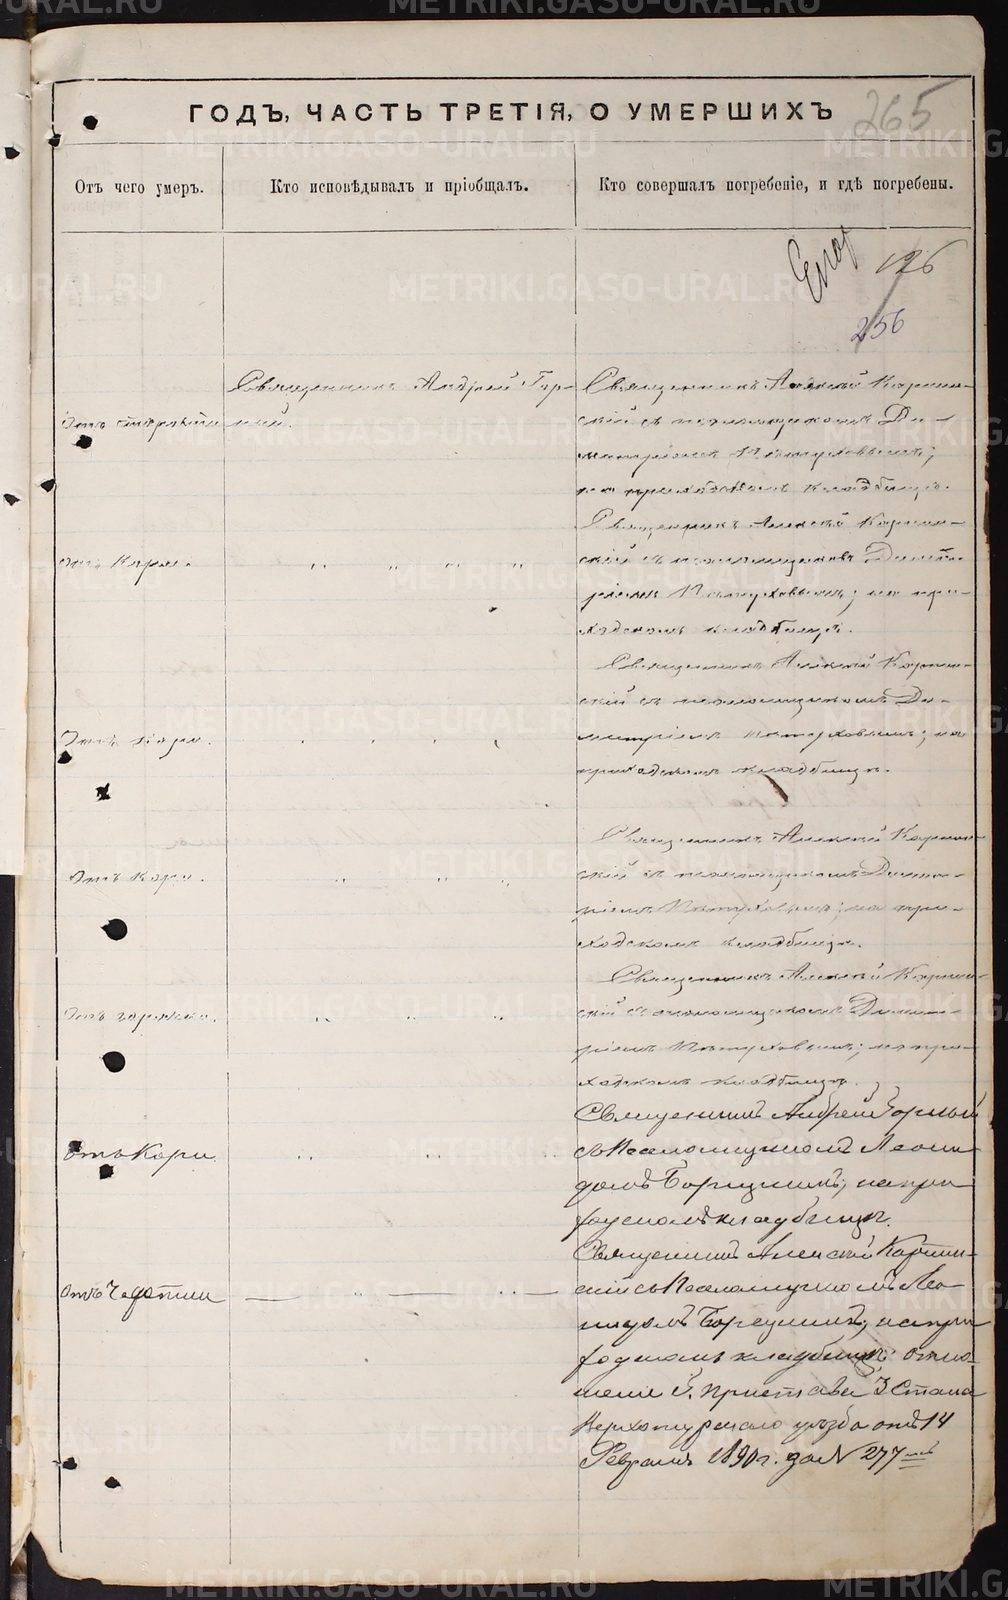 METRIKI.GASO-URAL.RU
ГОДЪ, ЧАСТЬ ТРЕТІЯ, О УМЕРШИХЪ
265
Отъ чего умер.
Кто исповѣдывалъ и пріобщалъ.
Кто совершалъ погребеніе, и гдѣ погребены.
126
256
Священникъ Андрей Гор-
ный.
Священникъ Алексѣй Карпин-
скій съ псаломщикомъ Ди-
митріемъ
на приходскомъ кладбищѣ.
Отъ Кори.
Священникъ Алексѣй Карпин-
скій съ псаломщикомъ Димит-
ріемъ на при-
ходскомъ кладбищѣ.
Отъ кори.
Священникъ Алексѣй Карпин-
скій съ псаломщикомъ Ди-
митріемъ на
приходскомъ кладбищѣ.
Отъ кори.
Священникъ Алексѣй Карпин-
скій съ псаломщикомъ Димит-
ріемъ на при-
ходскомъ кладбищѣ.
Отъ горячки.
Священникъ Алексѣй Карпин-
скій съ псаломщикомъ Димит-
ріемъ на при-
ходскомъ кладбищѣ.
Отъ Кори
Священникъ Андрей Горный
съ Псаломщикомъ Леони-
домъ на при
ходскомъ кладбищѣ.
Отъ Чахотки
Священникъ Алексѣй Карпин-
скій съ Псаломщикомъ Лео-
нидомъ на при
ходскомъ кладбищѣ: отно-
шеніе Г. Пристава 3 Стана
Верхотурскаго уѣзда отъ 14
Февраля 1890 г. за № 277